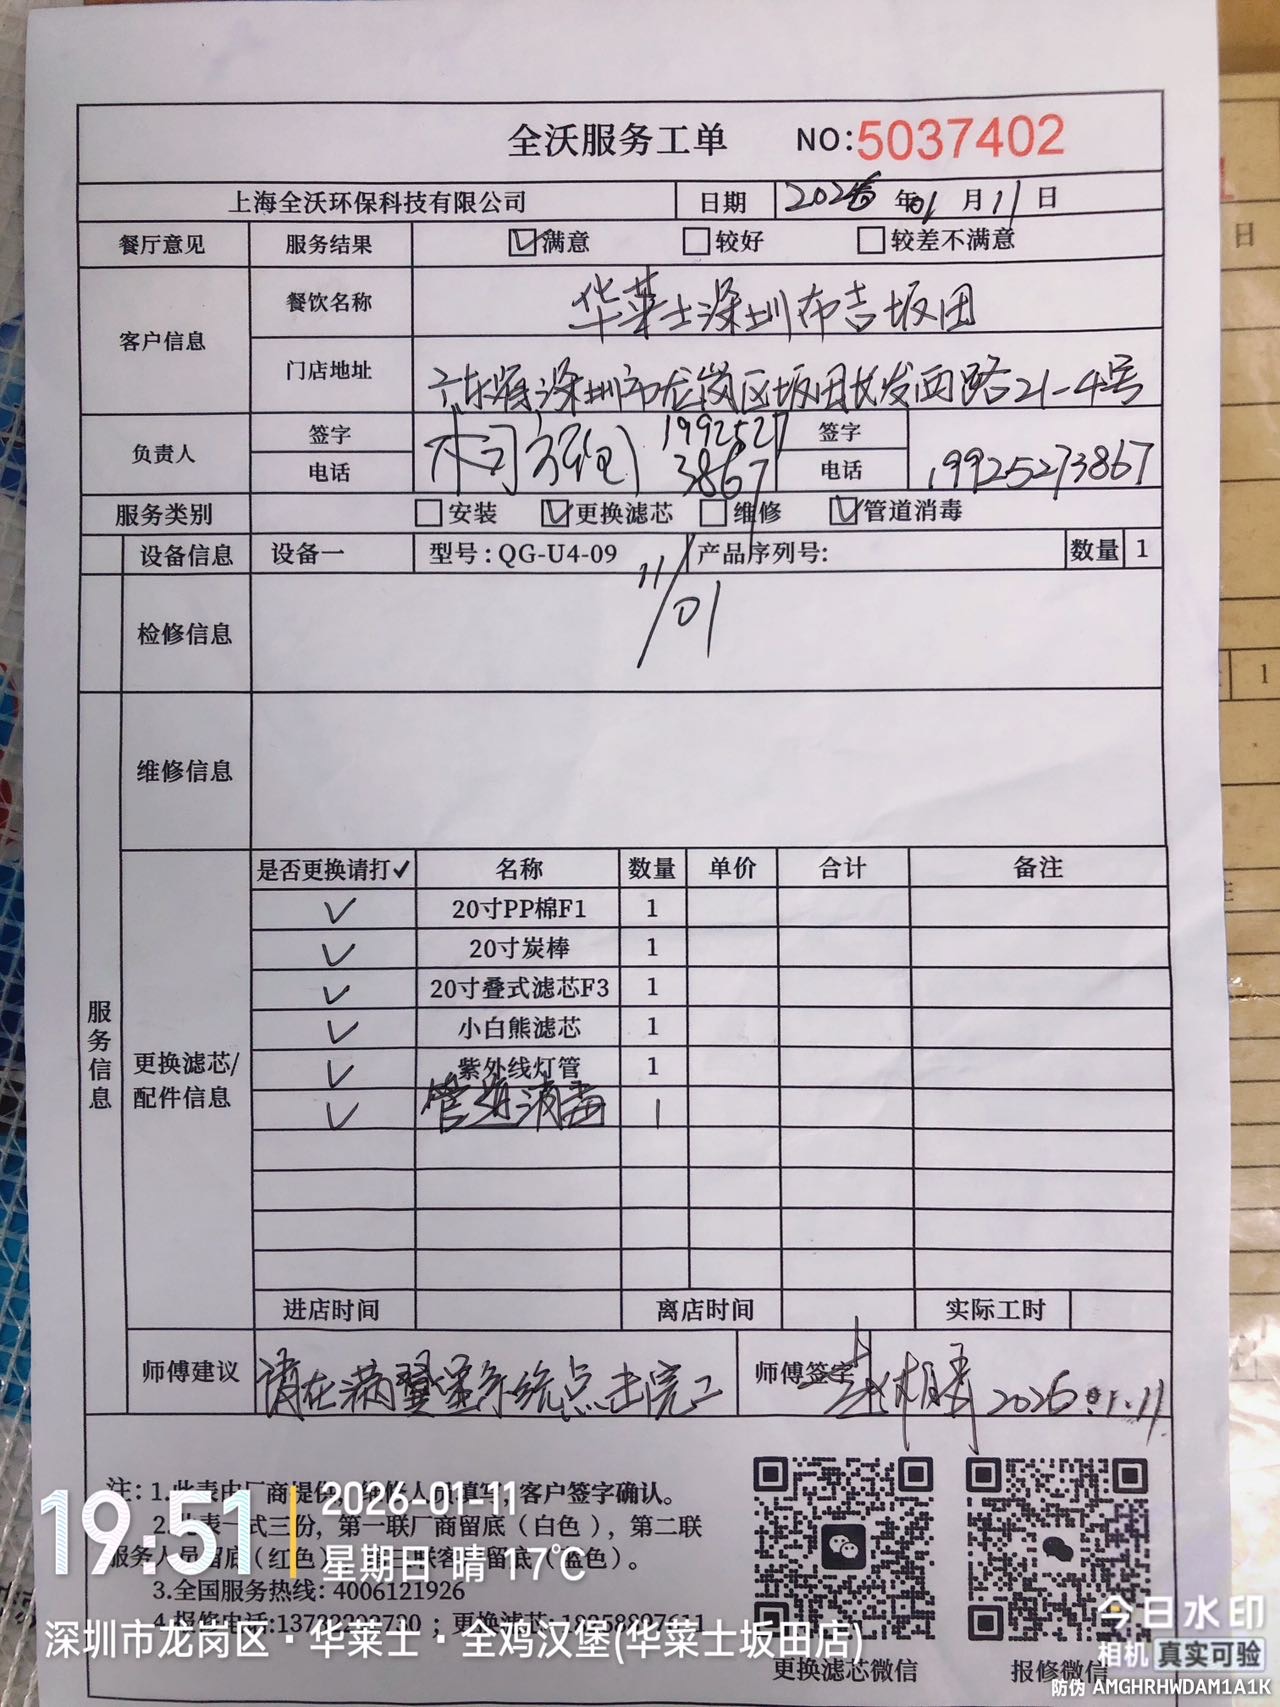 全沃服务工单 NO:5037402
上海全沃环保科技有限公司 日期 2026年01月11日
餐厅意见 服务结果 ☑满意 □较好 □较差不满意
客户信息 餐饮名称 华莱士深圳布吉坂田
门店地址 广东省深圳市龙岗区坂田长发西路21-4号
负责人 签字 19925273867 签字
电话 电话 19925273867
服务类别 □安装 ☑更换滤芯 □维修 ☑管道消毒
设备信息 设备一 型号:QG-U4-09 产品序列号: 数量 1
11/01
检修信息
维修信息
服务信息
更换滤芯/配件信息
是否更换请打✓ 名称 数量 单价 合计 备注
✓ 20寸PP棉F1 1
✓ 20寸炭棒 1
✓ 20寸叠式滤芯F3 1
✓ 小白熊滤芯 1
✓ 紫外线灯管 1
✓ 管道消毒 1
进店时间 离店时间 实际工时
师傅建议 请在满登堡系统点击完工 师傅签字 2026.01.11
注: 1.此表由厂商提供, 维修人员填写, 客户签字确认。
2.此表一式三份, 第一联厂商留底（白色）, 第二联
服务人员留底（红色）, 第三联客户留底（蓝色）。
3.全国服务热线: 4006121926
4.报修电话: ; 更换滤芯:
更换滤芯微信 报修微信
19:51 2026-01-11
星期日 晴 17℃
深圳市龙岗区·华莱士·全鸡汉堡(华莱士坂田店)
今日水印
相机 真实可验
防伪 AMGHRHWDAM1A1K